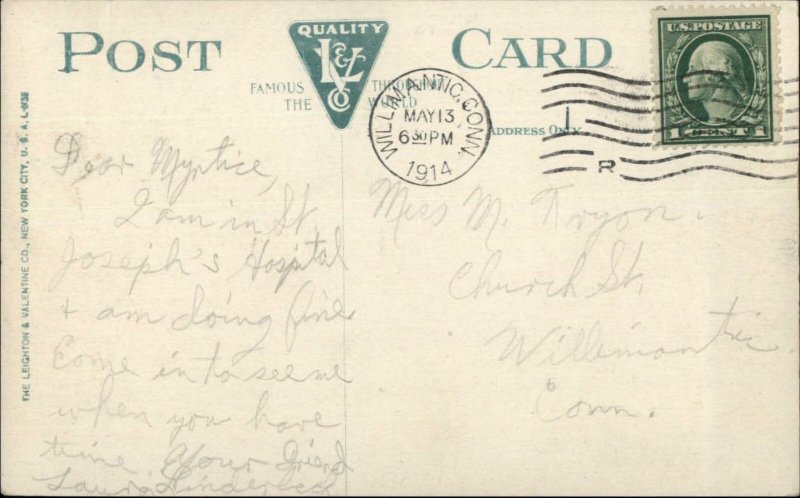 POST CARD
QUALITY
L&V
CO
FAMOUS THROUGHOUT
THE WORLD
WILLIMANTIC, CONN.
MAY 13
6 30 PM
1914
U.S. POSTAGE
1 CENT 1
ADDRESS ONLY
R
THE LEIGHTON & VALENTINE CO., NEW YORK CITY, U. S. A.
Dear Myrtice,
I am in St.
Joseph's Hospital
& am doing fine
Come in to see me
when you have
time. Your Friend
Laura
Miss M. Tryon.
Church St.
Willimantic
Conn.